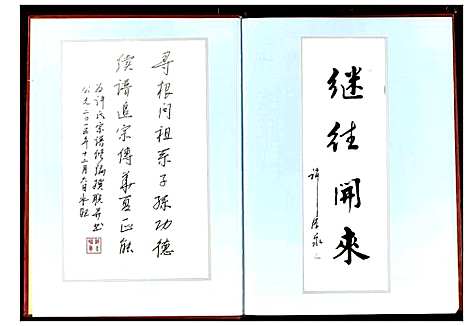 继往開來
寻根问祖系子孫功德
续谱追宗傳華夏正能
为许氏宗谱修编撰联并书
公元二〇一五年十二月六日